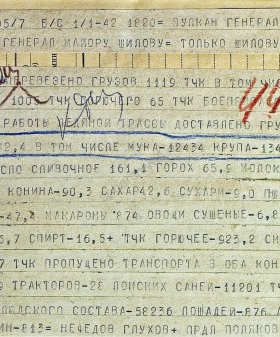 05/7 Б/С 1/1-42 1820= ВУЛКАН ГЕНЕРАЛ
ГЕНЕРАЛ МАЙОРУ ШИЛОВУ= ТОЛЬКО ШИЛОВУ
ПЕРЕВЕЗЕНО ГРУЗОВ 1119 ТЧК В ТОМ ЧИС
100 ТЧК ГОРЮЧЕГО 65 ТЧК БОЕПР
РАБОТЫ ЛЕДЯНОЙ ТРАССЫ ДОСТАВЛЕНО ГРУ
2,4 В ТОМ ЧИСЛЕ МУКА-12434 КРУПА-134
СЛО СЛИВОЧНОЕ 161,1 ГОРОХ 65,9 МОЛОК
КОНИНА-90,3 САХАР42,6 СУХАРИ-9,0 ПШ
-47,2 МАКАРОНЫ 874 ОВОЩИ СУШЕНЫЕ-6,8
5,7 СПИРТ-16,5+ ТЧК ГОРЮЧЕЕ-923,2 СМ
7 ТЧК ПРОПУЩЕНО ТРАНСПОРТА З ОБА КОН
9 ТРАКТОРОВ-28 КОНСКИХ САНЕЙ-11201 ТЧ
ЛЮДСКОГО СОСТАВА-58236 ЛОШАДЕЙ-876
ИН-813= НЕФЕДОВ ГЛУХОВ+ ПРДЛ ПОЛЯКОВ